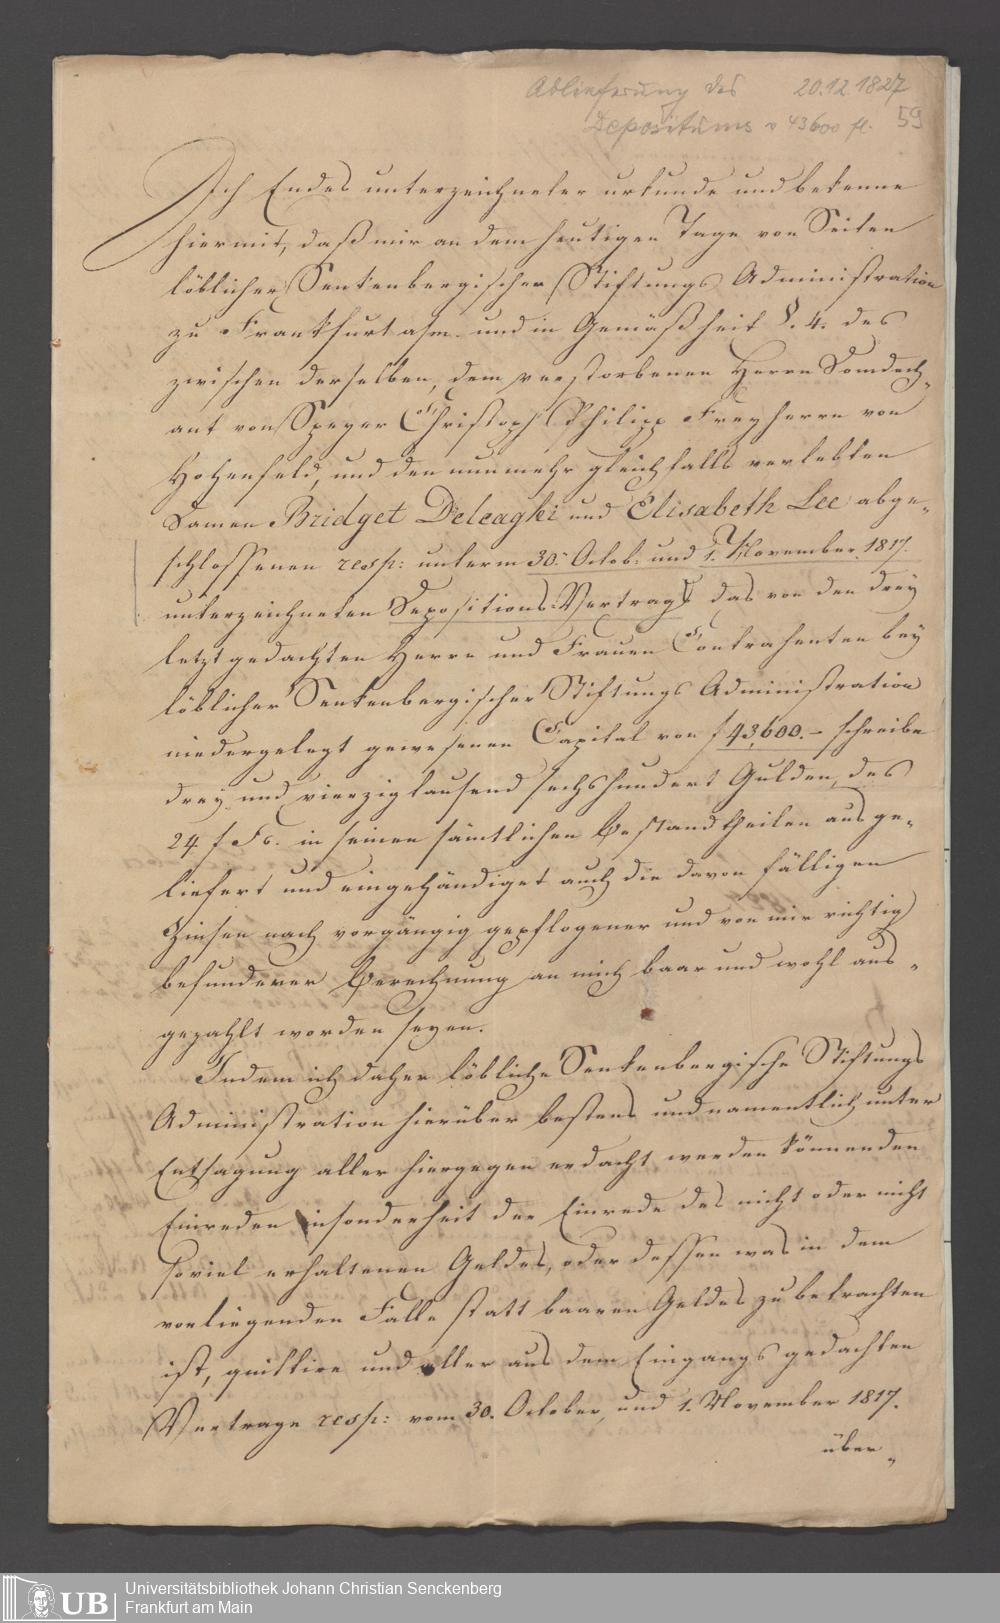 Ablieferung des 20.12.1827
Depositums v 43600 fl. 59
Ich Endes unterzeichneter urkunde und bekenne
hiermit, daß mir an dem heutigen Tage von Seiten
löblicher Senkenbergischer Stiftungs Administration
zu Frankfurt a/m. und in Gemäßheit §. 4. des
zwischen derselben, dem verstorbenen Herrn Domdech„
ant von Speyer Christoph Philipp Freyherrn von
Hohenfeld, und den nunmehr gleichfalls verlebten
Damen Bridget D'eleaghi und Elisabeth Lee abge„
schlossenen resp: unterm 30. Octob: und 1. November 1817.
unterzeichneten Depositions-Vertrags das von den drey
letzt gedachten Herrn und Frauen Contrahenten bey
löblicher Senkenbergischer Stiftungs Administration
niedergelegt gewesenen Capital von f 43,600.– schreibe
drey und vierzigtausend sechshundert Gulden, des
24 f Fs. in seinen sämtlichen Bestandtheilen ausge„
liefert und eingehändiget auch die davon fälligen
Zinsen nach vorgängig gepflogener und von mir richtig
befundener Berechnung an mich baar und wohl aus„
gezahlt worden seyen.
Indem ich daher löbliche Senkenbergische Stiftungs
Administration hierüber bestens und namentlich unter
Entsagung aller hiergegen erdacht werden könnenden
Einreden insonderheit der Einrede des nicht oder nicht
soviel erhaltenen Geldes, oder dessen was in dem
vorliegenden Falle statt baaren Geldes zu betrachten
ist, quittire und aller aus dem Eingangs gedachten
Vertrage resp: vom 30. October, und 1. November 1817.
über„
UB
Universitätsbibliothek Johann Christian Senckenberg
Frankfurt am Main